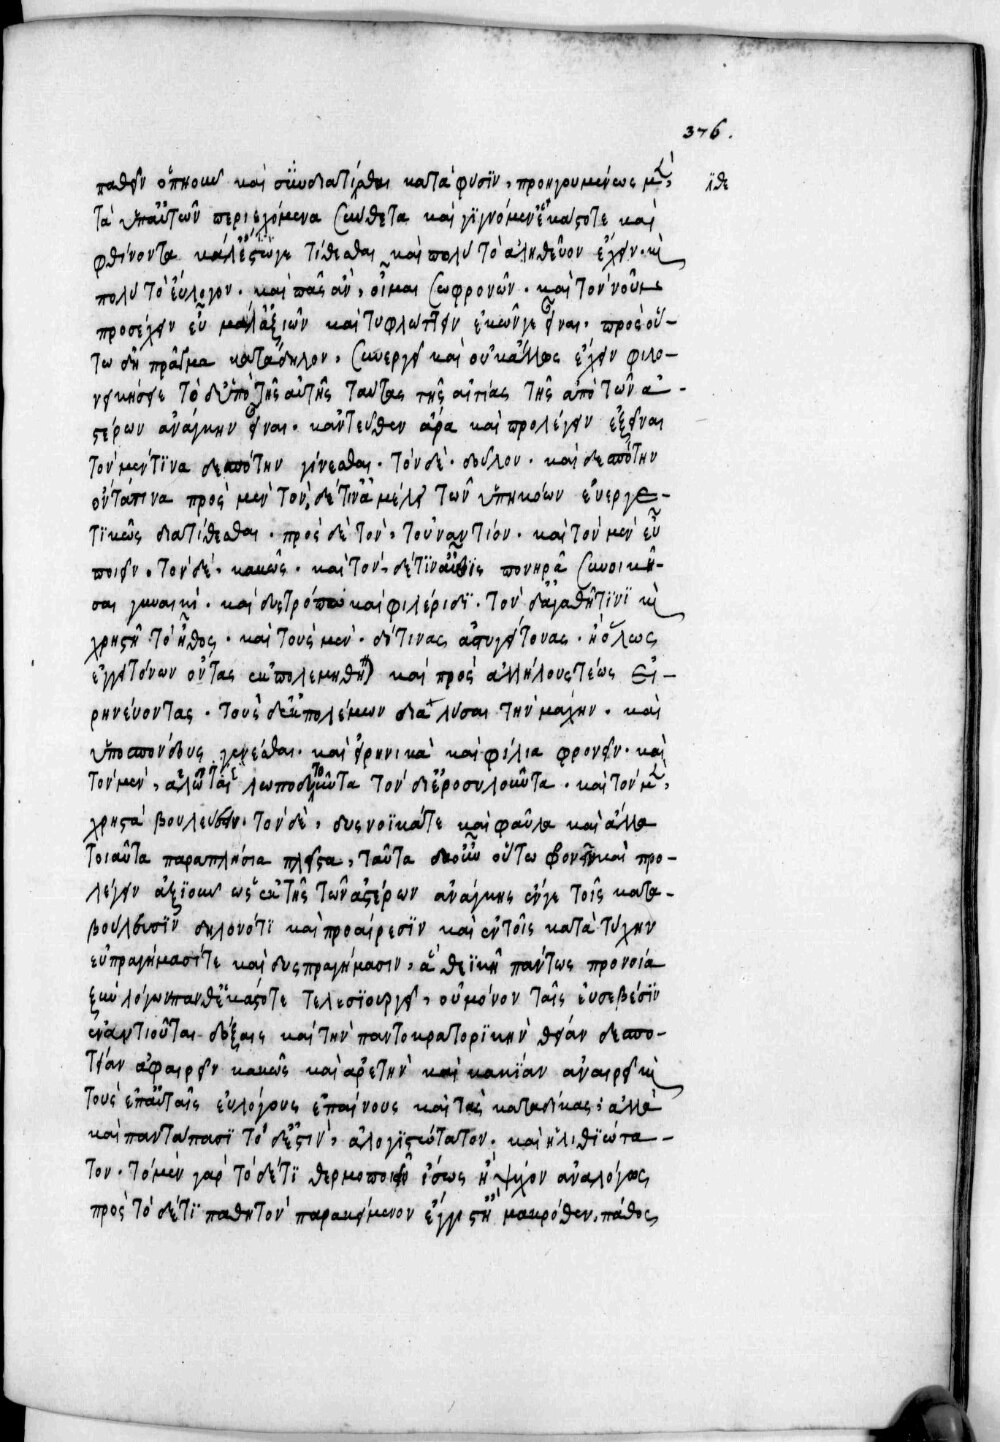 376.
παθεῖν ὁπηοῦν καὶ συνδιατίθεσθαι κατὰ φύσιν, προηγουμένως μὲν,
τὰ ὑπ' αὐτῶν περιεχόμενα σύνθετα καὶ γιγνόμεν' ἑκάστοτε καὶ
φθίνοντα τίθεσθαι καὶ πολὺ τὸ ἀληθεῦον ἔχειν. καὶ
πολὺ τὸ εὔλογον. καὶ πᾶς ἂν, οἶμαι σωφρονῶν. καὶ τὸν νοῦν
προσέχειν εὖ μάλ' ἀξιῶν καὶ τυφλώττειν ἑκὼν εἶναι. πρὸς οὕ-
τω δὴ πρᾶγμα κατάδηλον, συνεργεῖ καὶ οὐκ ἄλλως ἔχειν φιλο-
νεικήσειε τὸ δ' ὑπὸ τῆς αὐτῆς ταύτης τῆς αἰτίας τῆς ἀπὸ τῶν ἀ-
στέρων ἀνάγκην εἶναι. κἀντεῦθεν ἄρα καὶ προλέγειν ἐξεῖναι
τὸν μέν τινα δεσπότην γίνεσθαι. τὸν δὲ. δοῦλον. καὶ δεσπότην
ὄντά τινα πρὸς μὲν τὸν, δέ τινα μέλει τῶν ὑπηκόων εὐεργε-
τικῶς διατίθεσθαι. πρὸς δὲ τὸν, τοὐναντίον. καὶ τὸν μὲν εὖ
ποιεῖν, τὸν δὲ, κακῶς. καὶ τὸν, δέ τινα αὖθις πονηρᾷ συνοικῆ-
σαι γυναικὶ. καὶ δυστρόπῳ καὶ φιλέριδι. τὸν δ' ἀγαθῇ τινι καὶ
χρηστῇ τὸ ἦθος. καὶ τοὺς μὲν. δέ τινας ἀστυγείτονας. ἢ ὅλως
ἐγγειτόνων ὄντας ἐκπολεμηθῆναι καὶ πρὸς ἀλλήλους τέως εἰ-
ρηνεύοντας. τοὺς δ' ἐκ πολέμων διαλύσαι τὴν μάχην. καὶ
ὑποσπόνδους γενέσθαι. καὶ εἰρηνικὰ καὶ φίλια φρονεῖν. καὶ
τὸν μὲν, ἁλῶναι λωποδυτοῦντα τὸν δ' ἱεροσυλοῦντα. καὶ τὸν μὲν,
χρηστὰ βουλεύειν. τὸν δὲ, δυσνοϊκά τε καὶ φαῦλα καὶ ἄλλα
τοιαῦτα παραπλήσια πλεῖστα, ταῦτα δ' οὖν οὕτω φρονεῖν καὶ προ-
λέγειν ἀξιοῦν ὡς ἐκ τῆς τῶν ἀστέρων ἀνάγκης ἔν γε τοῖς κατὰ
βούλευσιν δηλονότι καὶ προαίρεσιν καὶ ἐν τοῖς κατὰ τύχην
εὐπραγήμασί τε καὶ δυσπραγήμασιν, ἃ θεϊκὴ πάντως προνοία
ξὺν λόγῳ πανθ' ἑκάστοτε τελεσιουργεῖ, οὐ μόνον ταῖς εὐσεβέσιν
ἐναντιοῦται δόξαις καὶ τὴν παντοκρατορικὴν θείαν δεσπο-
τείαν ἀφαιρεῖν κακῶς καὶ ἀρετὴν καὶ κακίαν ἀναιρεῖ καὶ
τοὺς ἐπ' αὐταῖς εὐλόγους ἐπαίνους καὶ τὰς καταδίκας. ἀλλὰ
καὶ πανταπασί τὸ δ' ἐστὶν, ἀλογιστότατον. καὶ ἠλιθιώτα-
τον. τὸ μὲν γὰρ τὸ δέ τι θερμοποιεῖν ἴσως ἢ ψύχον ἀναλόγως
πρὸς τὸ δέ τι παθητὸν παρακείμενον ἐγγὺς ἢ μακρόθεν, πάθος